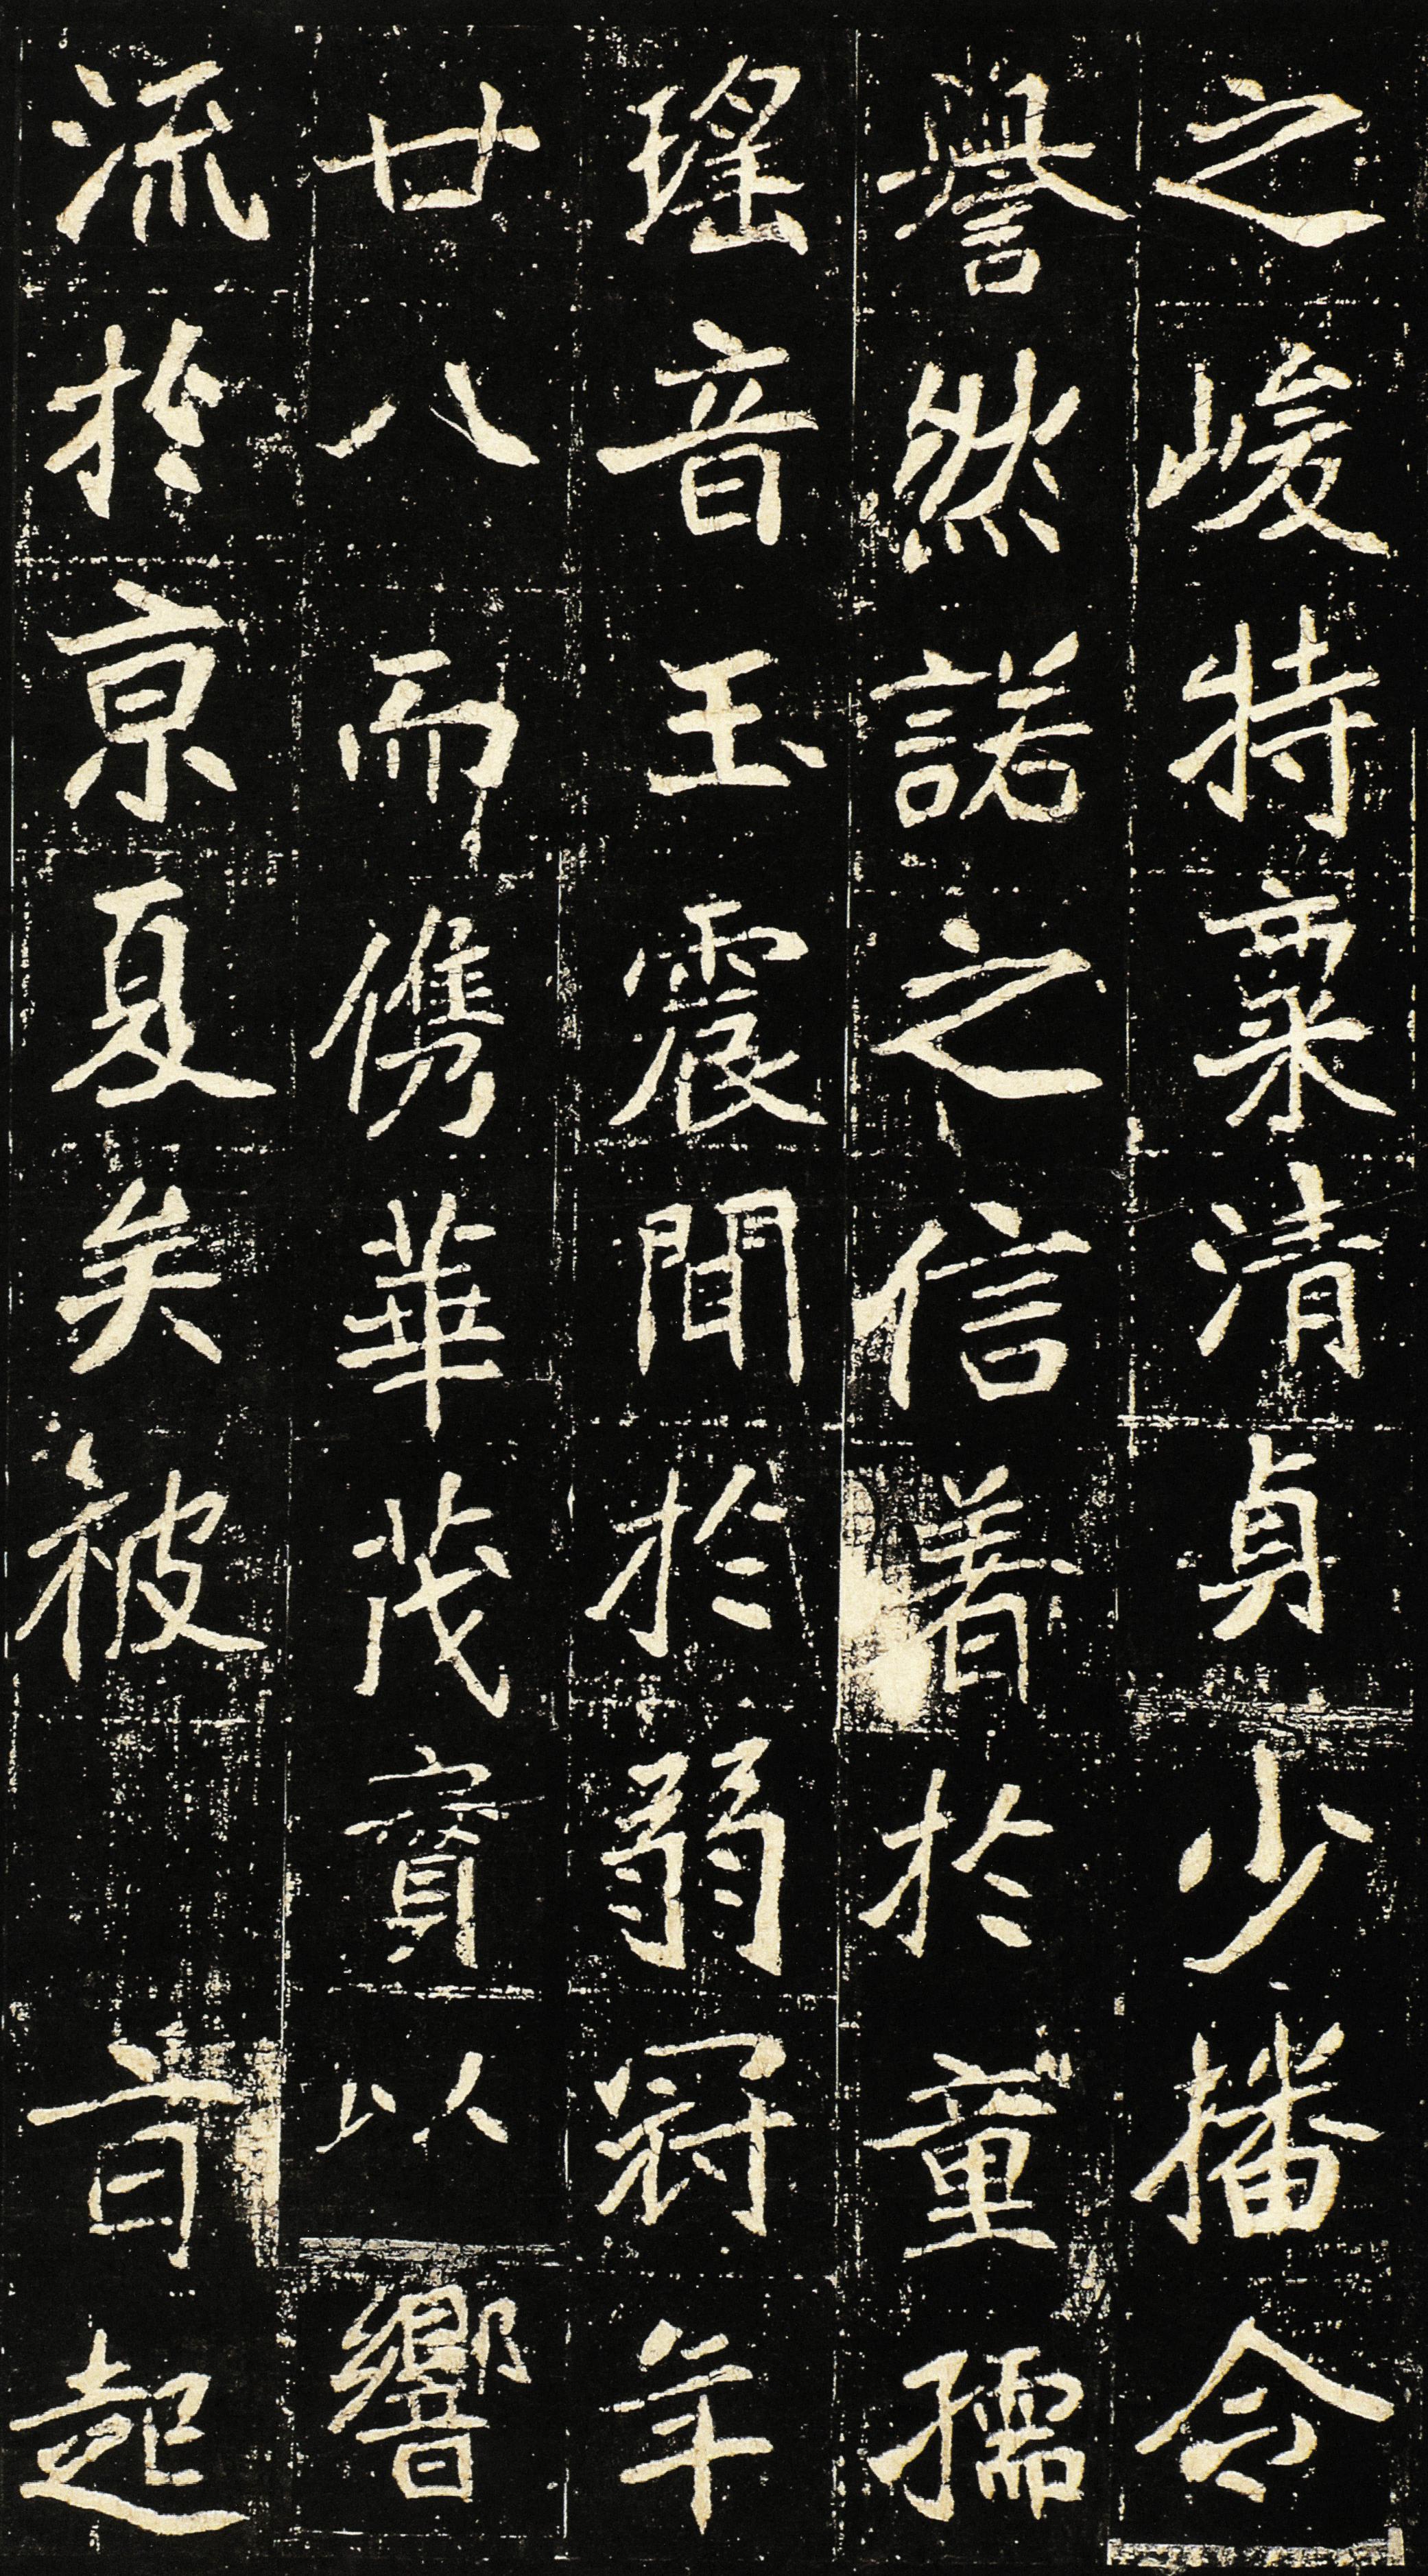 之峻特稟清貞少播令
譽然諾之信著於童孺
瑤音玉震聞於弱冠年
廿八而儁華茂實以響
流於京夏矣被 旨起